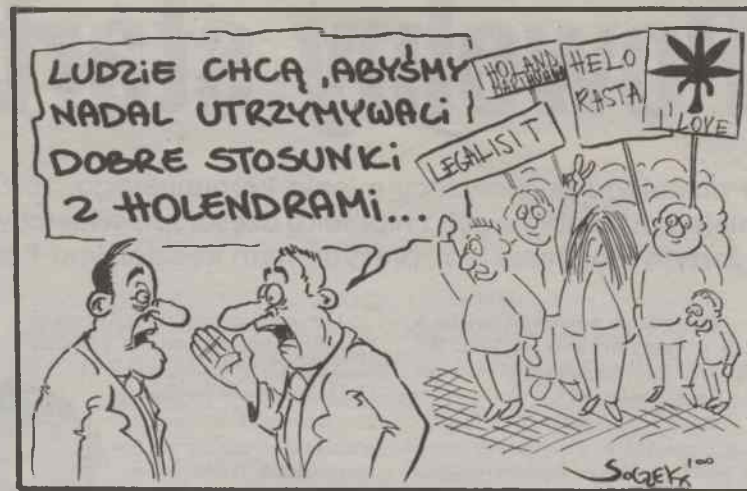 LUDZIE CHCĄ, ABYŚMY
NADAL UTRZYMYWALI
DOBRE STOSUNKI
Z HOLENDRAMI...
HOLAND
LEGALISIT
HELO
RASTA
I'LOVE
SOCZEK '00